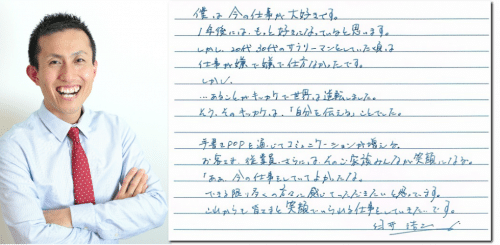 僕は今の仕事が大好きです。
1年後には、もっと好きになっていると思います。
しかし、20代30代のサラリーマンをしていた頃は
仕事が嫌で嫌で仕方なかったです。
しかし、
…あることがキッカケで世界は逆転しました。
そのキッカケは、「自分を伝える」ことでした。
手書きPOPを通じてコミュニケーションが増え、
お客さま、従業員、さらには、そのご家族みんなが笑顔になる。
「ああ、今の仕事をしていてよかったな。」
できる限り多くの方々に感じていただきたいと思っています。
これからも皆さまと笑顔でいられる仕事をしていきたいです。